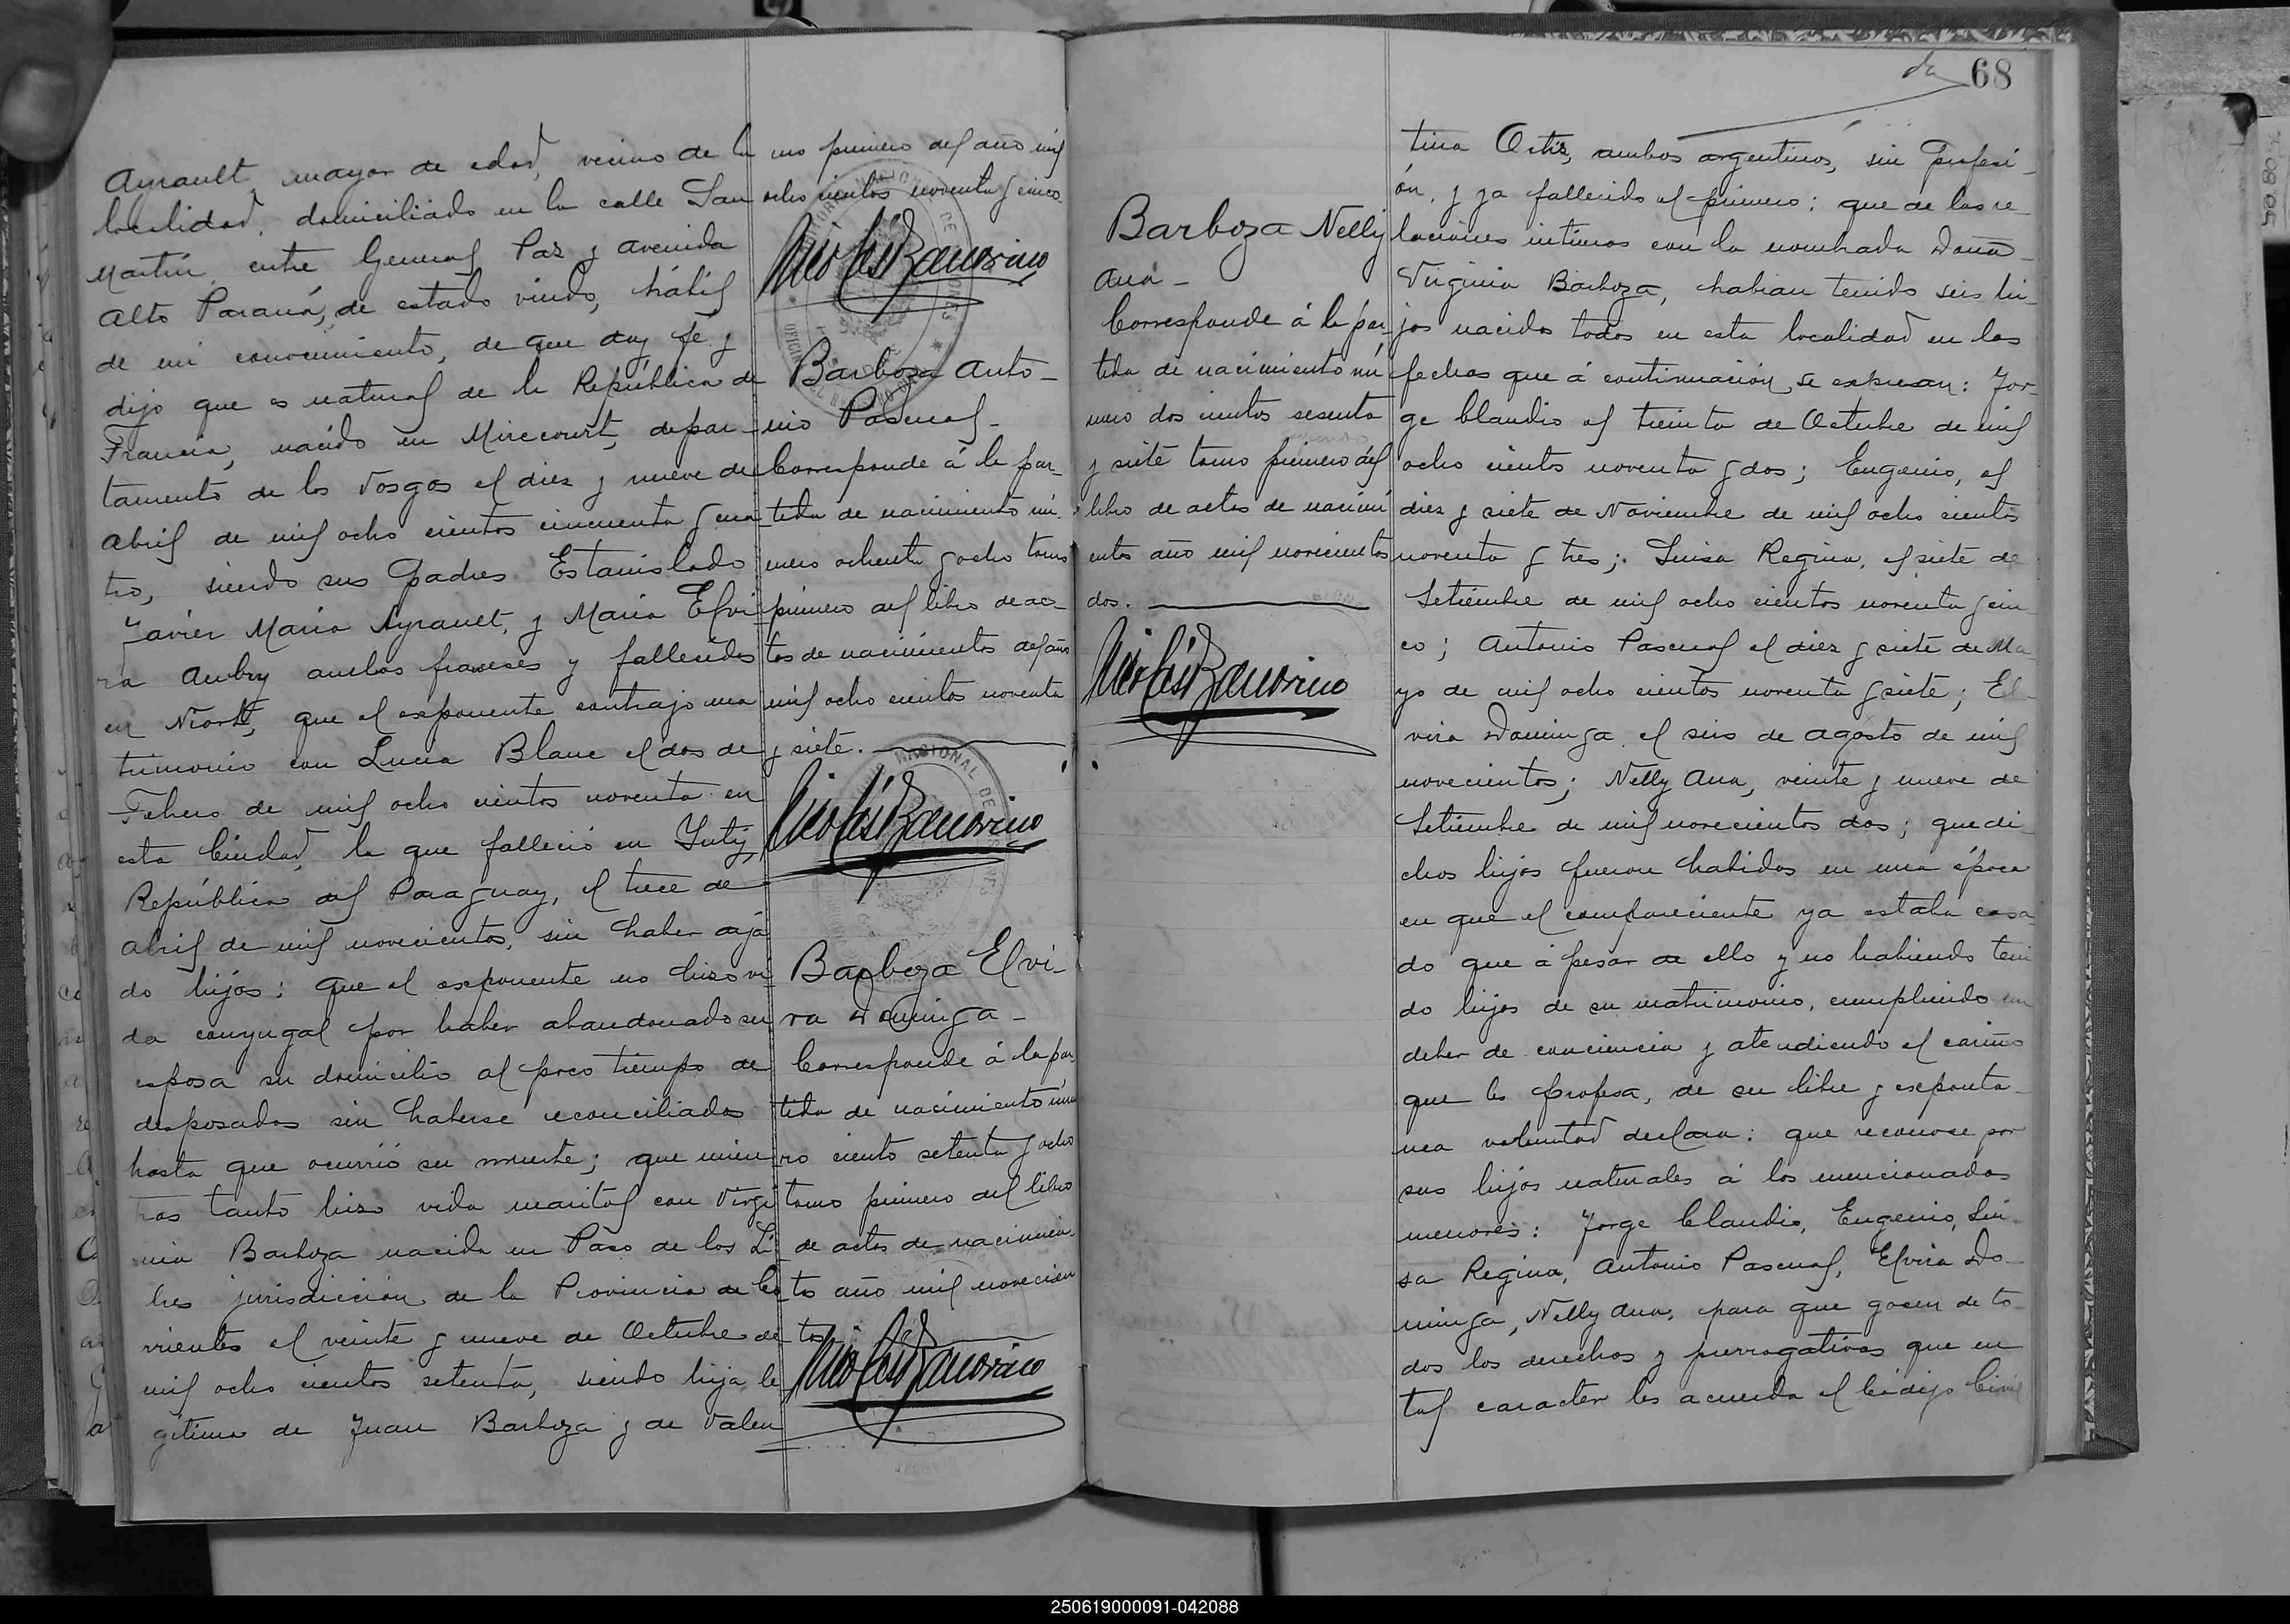 Ayrault, mayor de edad, vecino de la
localidad, domiciliado en la calle San
Martin, entre General Paz y avenida
Alto Paraná, de estado viudo, hábil
de mi conocimiento, de que doy fé y
dijo que es natural de la República de
Francia, nacido en Mirecourt, depar-
tamento de los Vosgos el diez y nueve de
Abril de mil ocho cientos cincuenta y cua
tro, siendo sus padres Estanislado
Javier Maria Ayrault, y Maria Elvi
ra Aubry ambos franceses y fallecidos
en Niort, que el esponente contrajo ma
trimonio con Lucia Blanc el dos de
Febrero de mil ocho cientos noventa en
esta Ciudad, la que falleció en Yuty,
República del Paraguay, el trece de
Abril de mil novecientos, sin haber deja
do hijos: que el esponente no hizo vi
da conyugal por haber abandonado su
esposa su domicilio al poco tiempo de
desposados sin haberse reconciliados
hasta que ocurrió su muerte; que mien
tras tanto hizo vida marital con Virgi
nia Barboza nacida en Paso de los Li
bres jurisdicción de la Provincia de Co
rrientes el veinte y nueve de Octubre de
mil ocho cientos setenta, siendo hija le
gitima de Juan Barboza y de Valen
mo primero del año mil
ocho cientos noventa y cinco.
Barboza Anto-
nio Pascual-
Corresponde á la par-
tida de nacimiento nú-
mero ochenta y ocho tomo
primero del libro de ac-
tas de nacimientos del año
mil ocho cientos noventa
y siete.
NACIONAL DE
Barboza Elvi-
ra Dominga-
Corresponde á la par
tida de nacimiento núme
ro ciento setenta y ocho
tomo primero del libro
de actas de nacimien
to año mil novecien
tos.
68
Barboza Nelly
Ana-
Corresponde á la par-
tida de nacimiento nú
mero dos cientos sesenta
y siete tomo primero del
libro de actas de nacimi
entos año mil novecientos
dos.
tina Ortiz, ambos argentinos, sin profesi-
ón, y ya fallecido el primero: que de las re-
laciones intimas con la nombrada Doña
Virginia Barboza, habian tenido seis hi-
jos nacidos todos en esta localidad en las
fechas que á continuación se expresan: Jor-
ge Claudio el treinta de Octubre de mil
ocho cientos noventa y dos; Eugenio, el
diez y siete de Noviembre de mil ocho cientos
noventa y tres; Luisa Regina, el siete de
Setiembre de mil ocho cientos noventa y cin-
co; Antonio Pascual el diez y siete de Ma
yo de mil ocho cientos noventa y siete; El-
vira Dominga el seis de Agosto de mil
novecientos; Nelly Ana, veinte y nueve de
Setiembre de mil novecientos dos; que di
chos hijos fueron habidos en una época
en que el compareciente ya estaba casa
do que á pesar de ello y no habiendo teni
do hijos de su matrimonio, cumpliendo un
deber de conciencia y atendiendo el cariño
que les profesa, de su libre y esponta-
nea voluntad declara: que reconoce por
sus hijos naturales á los mencionados
menores: Jorge Claudio, Eugenio, Lui-
sa Regina, Antonio Pascual, Elvira Do-
minga, Nelly Ana, para que gocen de to-
dos los derechos y prerrogativas que en
tal caracter les acuerda el Código Civil
250619000091-042088